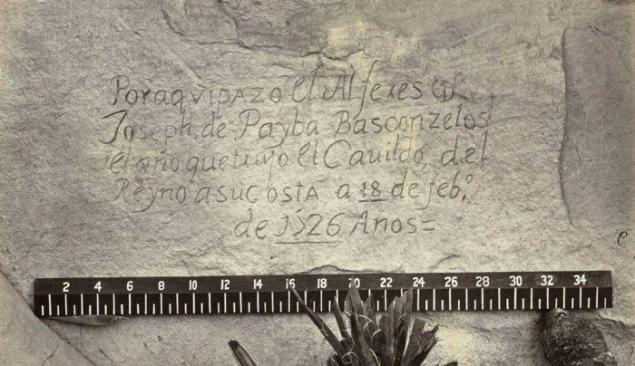 Por aqui pazo el Alferes Dn
Joseph de Payba Basconzelos
el año que trujo el Cavildo del
Reyno a su costa a 18 de febo
de 1526 Años=
2 4 6 8 10 12 14 16 18 20 22 24 26 28 30 32 34
e